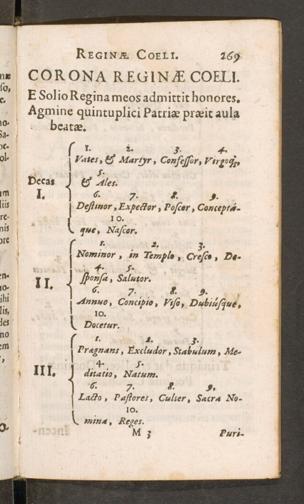 REGINÆ COELI. 269
CORONA REGINÆ COELI.
E Solio Regina meos admittit honores.
Agmine quintuplici Patriæ præit aula
beatæ.
1. 2. 3. 4.
Vates, & Martyr, Confessor, Virgoq;,
5.
Decas & Ales.
I. 6. 7. 8. 9.
Destinor, Expector, Poscor, Conceptá-
10.
que, Nascor.
1. 2. 3.
Nominor, in Templo, Cresco, De-
4. 5.
sponsa, Salutor.
II. 6. 7. 8. 9.
Annuo, Concipio, Viso, Dubiúsque,
10.
Docetur.
1. 2. 3.
Prægnans, Excludor, Stabulum, Me-
4. 5.
III. ditatio, Natum.
6. 7. 8. 9.
Lacto, Pastores, Culter, Sacra No-
10.
mina, Reges.
M 3 Puri-